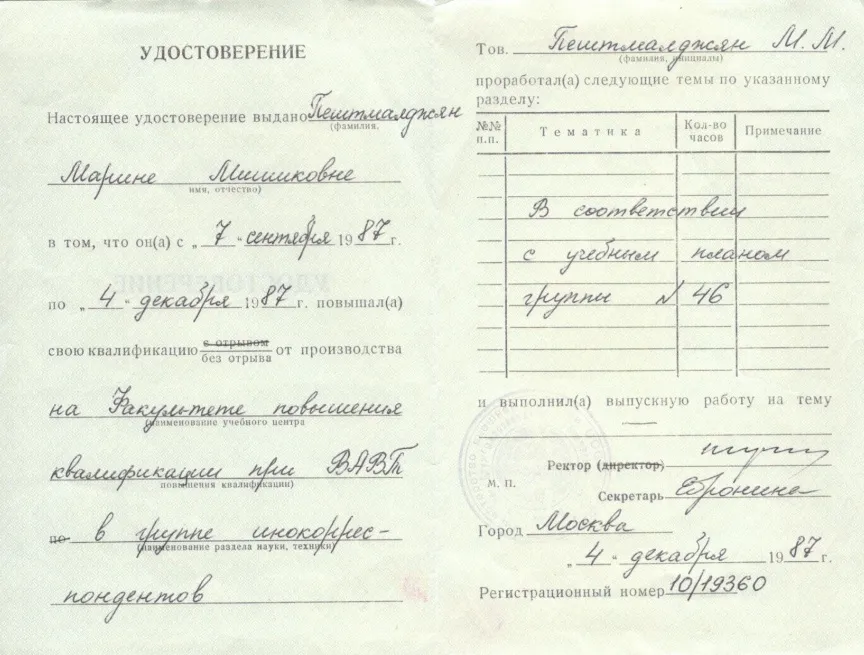 УДОСТОВЕРЕНИЕ
Настоящее удостоверение выдано Пештмалджян
(фамилия,
Марине Мишиковне
имя, отчество)
в том, что он(а) с „7“ сентября 1987 г.
по „4“ декабря 1987 г. повышал(а)
свою квалификацию с отрывом от производства
без отрыва
на Факультете повышения
(наименование учебного центра
квалификации при ВАВТ
повышения квалификации)
по в группе инокоррес-
(наименование раздела науки, техники)
пондентов
Тов. Пештмалджян М. М.
(фамилия, инициалы)
проработал(а) следующие темы по указанному
разделу:
№№ п.п. Тематика Кол-во часов Примечание
В соответствии
с учебным планом
группы № 46
и выполнил(а) выпускную работу на тему
—
Ректор (директор)
М. П.
Секретарь
Город Москва
„4“ декабря 1987 г.
Регистрационный номер 10/19360